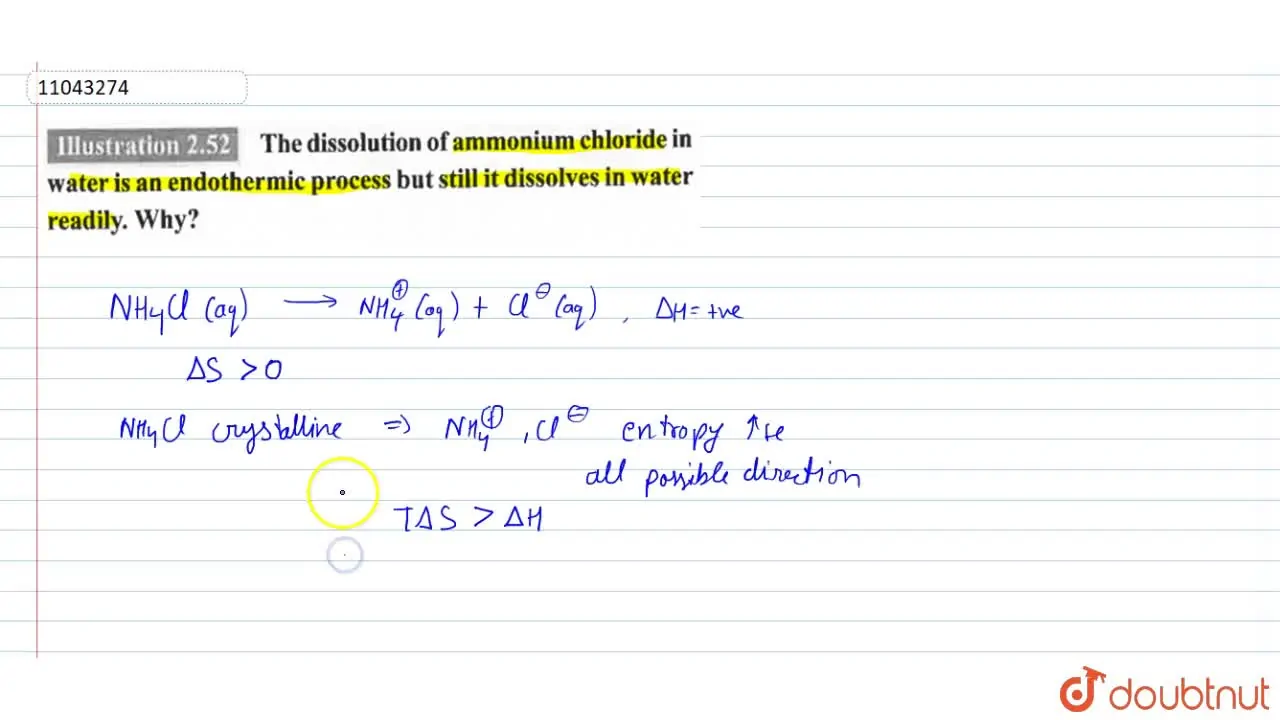 11043274
Illustration 2.52 The dissolution of ammonium chloride in
water is an endothermic process but still it dissolves in water
readily. Why?
NH4Cl (aq) → NH4⊕ (aq) + Cl⊖ (aq) , ΔH = +ve
ΔS > 0
NH4Cl crystalline ⇒ NH4⊕ , Cl⊖ entropy ↑se
all possible direction
TΔS > ΔH
doubtnut